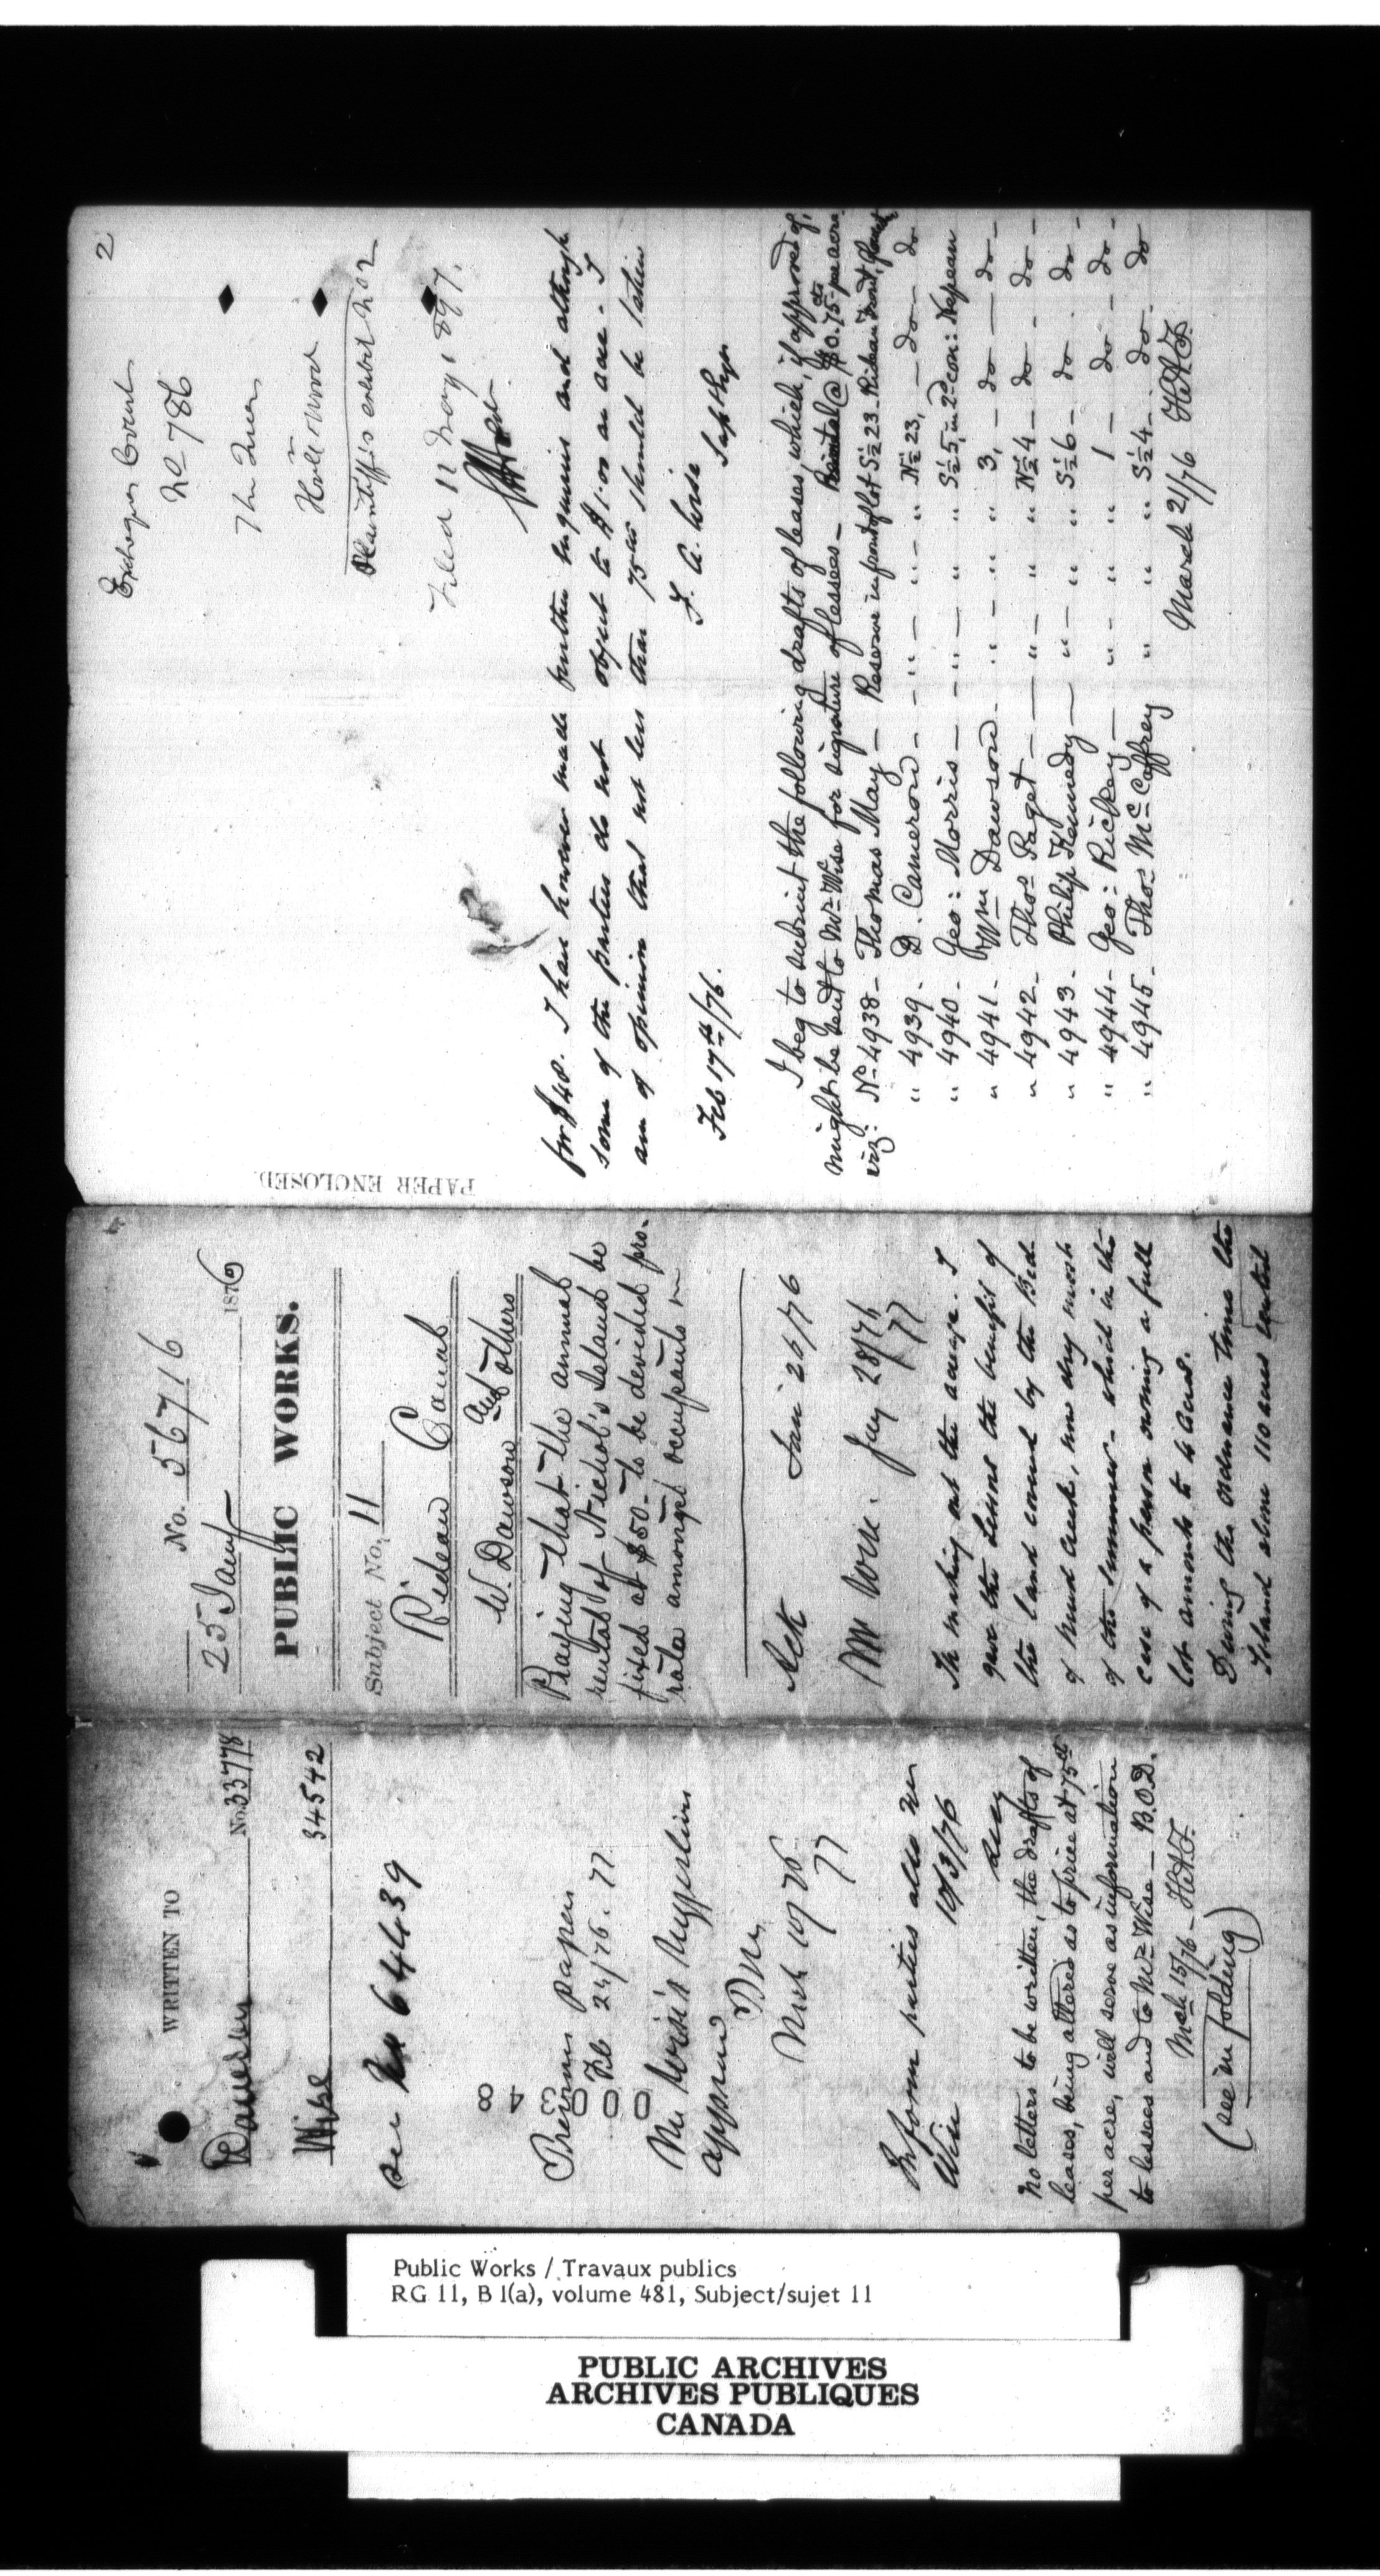 WRITTEN TO
Dawson No. 33778
Wise 34542
See No 64439
000348
Previous paper
Feb 24/76. 77
Mr Wise's suggestions
approved
Mch 10/76
77
Inform parties also Mr
Wise 10/3/76
no letters to be written, the drafts of
leases, being altered as to price at 75cts
per acre, will serve as information
to lessees and to Mr Wise — B.O.D.
Mch 15/76 — H.A.F.
(see in folding)
No. 56716
25 Jany 1876
PUBLIC WORKS.
Subject No. 11
Rideau Canal
W. Dawson and others
Praying that the annual
rental of Nichol's Island be
fixed at $50 — to be devided pro-
rata amongst occupants
Ack Jan 26/76
Mr Wise. Jany 28/76
77
In making out the acreage. I
gave the lessees the benefit of
the land covered by the Bed
of mud creek, now dry most
of the summer — which in the
case of a person owning a full
lot amounts to 4 acres.
During the ordnance time the
Island alone 110 acres rented
PAPER ENCLOSED.
2
Exchequer Court
No 786
The Queen
Plaintiff's exhibit No 2
Filed 12 May 1897.
for $40. I have however made further enquiries and although
some of the parties do not object to $1.00 an acre - I
am of opinion that not less than 75cts should be taken
F. A. Wise
Feb 17th/76.
I beg to submit the following drafts of leases, which, if approved of,
might be sent to Mr Wise for signature of lessees — Rental @ $0.75cts per acre.
viz: No 4938 — Thomas May — Reserve in front of lot S½ 23 Rideau Front,
" 4939 — D. Cameron — " — " — " N½ 23, — do — do
" 4940 — Geo: Morris — " — " " S½ 5, in 2d con: Nepean
" 4941 — Wm Dawson — " — " " 3, — do — do —
" 4942 — Thos Paget — " — " " N½ 4 — do — do —
" 4943 — Philip Kennedy — " — " " S½ 6 — do — do —
" 4944 — Geo: Richey — " — " " 1 — do — do —
" 4945 — Thos McCaffrey " " " S½ 4 — do — do
March 21/76 H.A.F.
Public Works / Travaux publics
RG 11, B 1(a), volume 481, Subject/sujet 11
PUBLIC ARCHIVES
ARCHIVES PUBLIQUES
CANADA